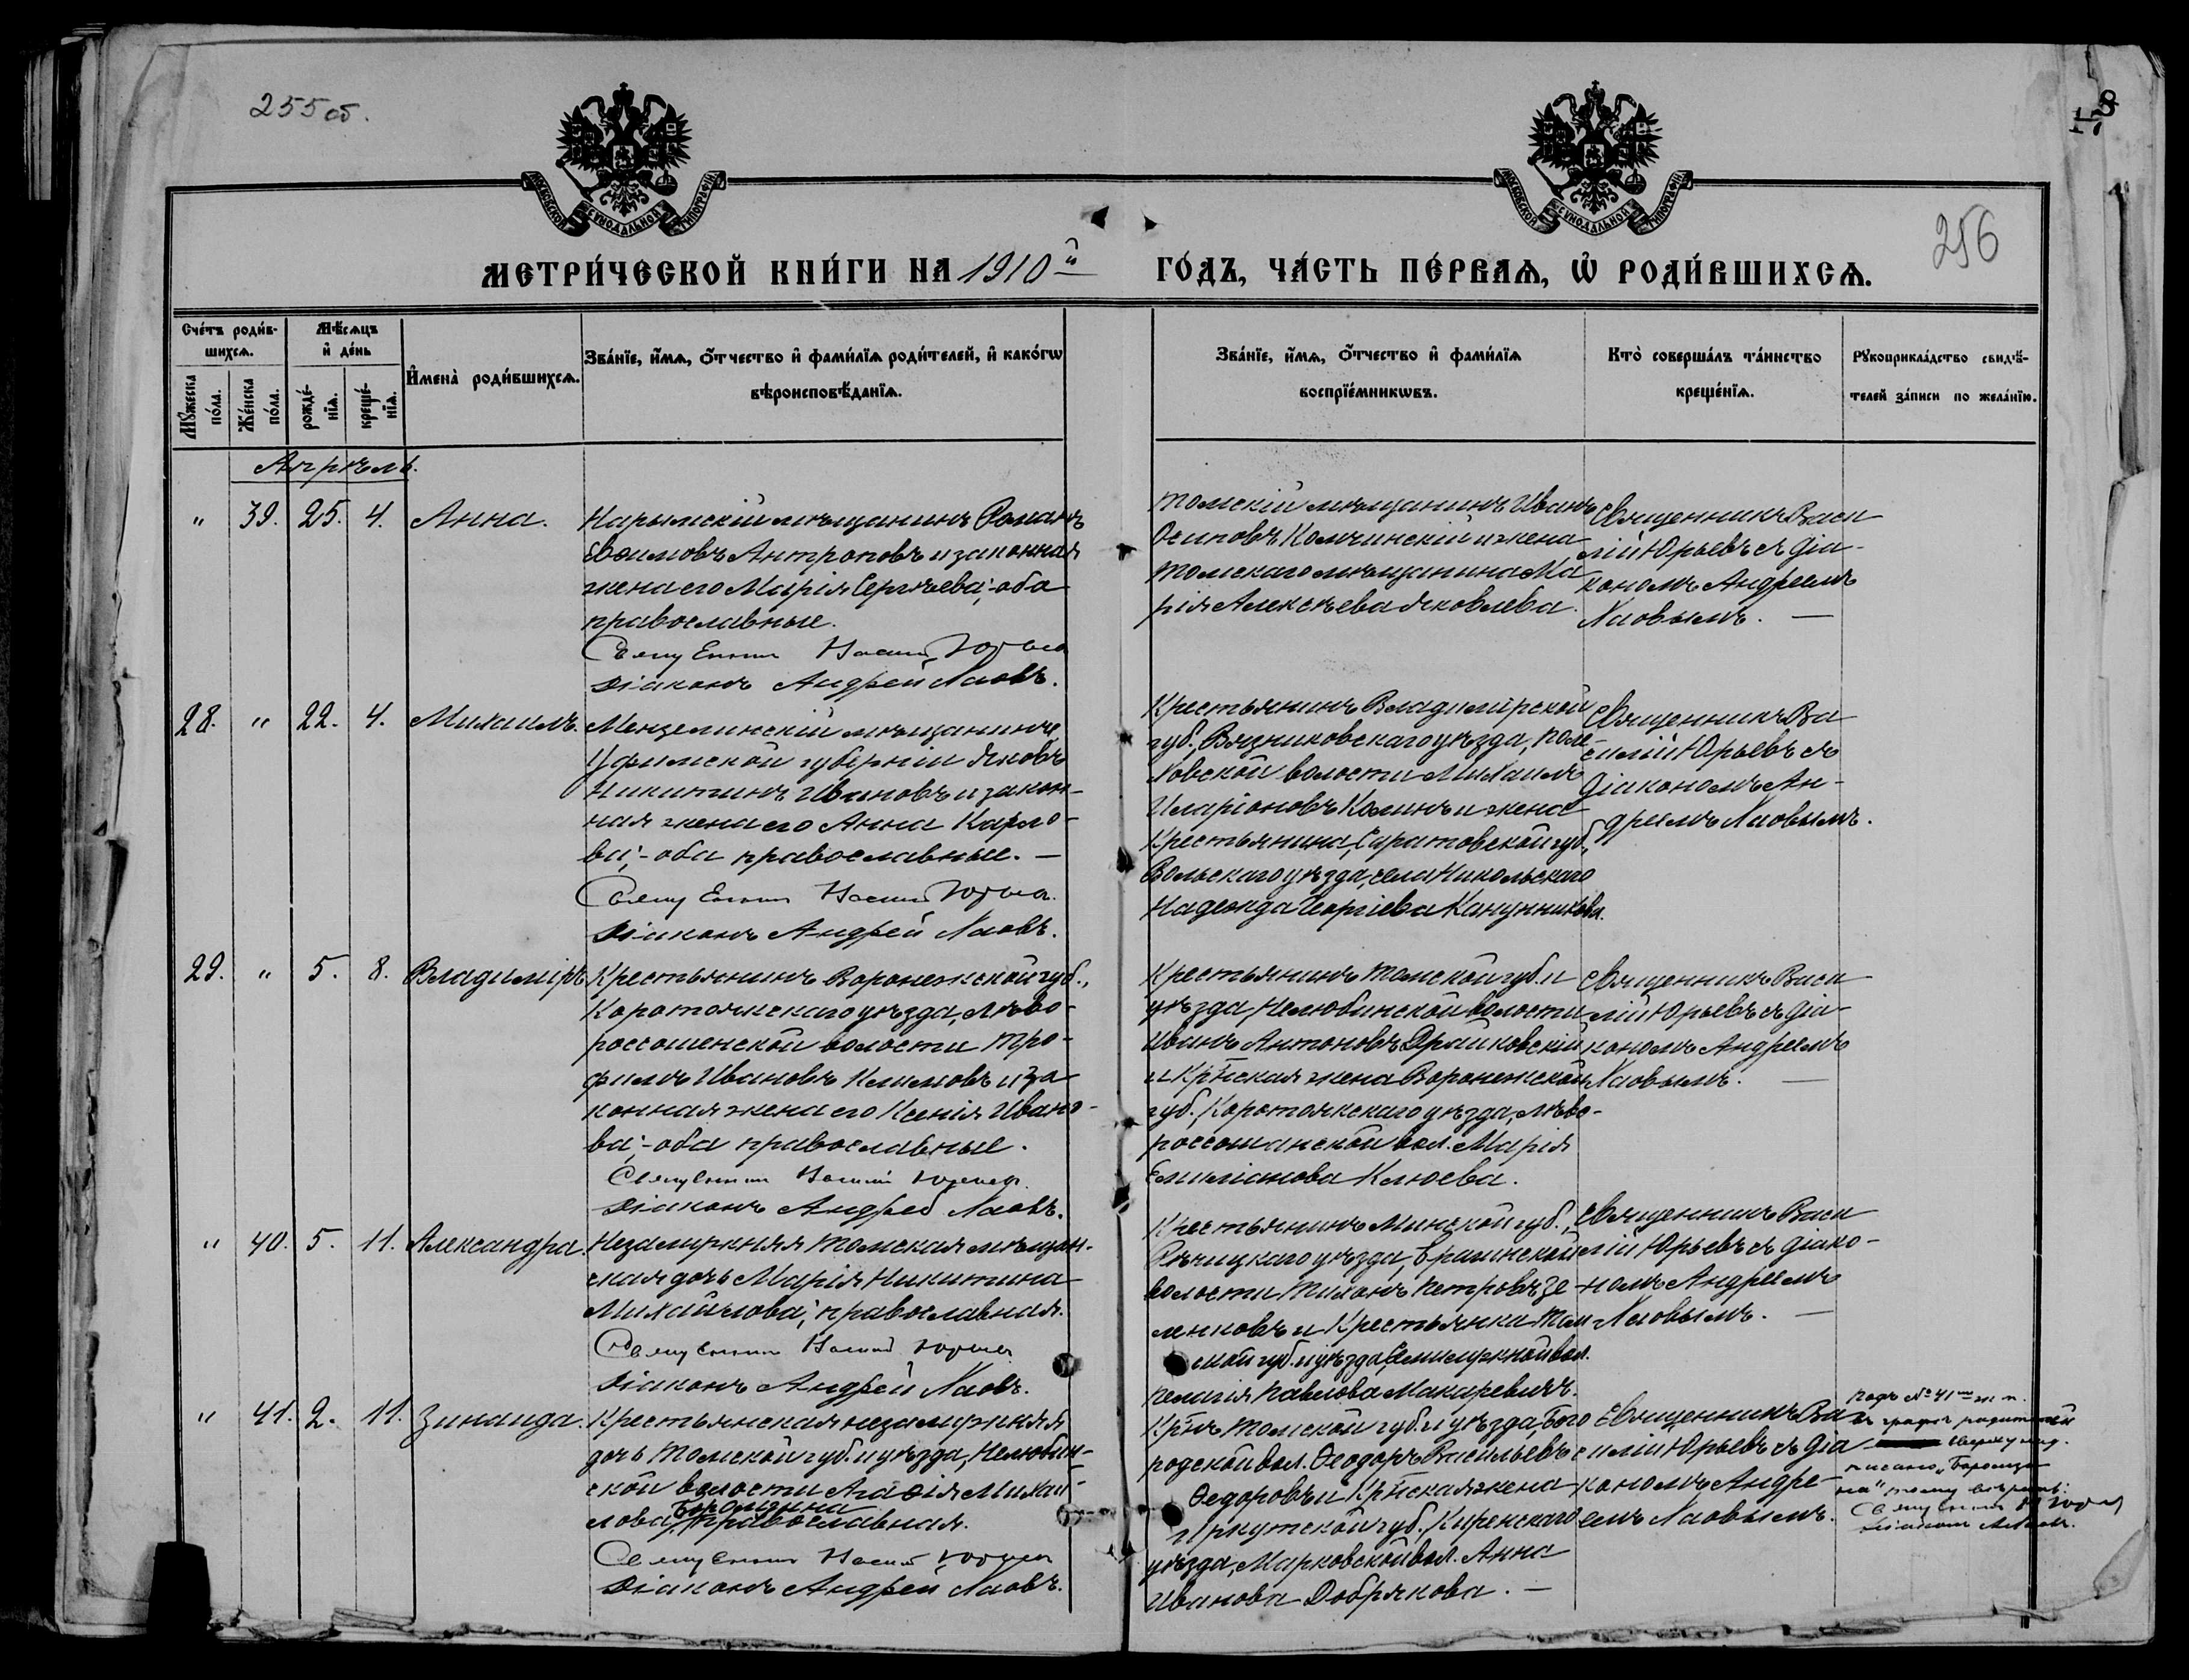 255 об.
8
17
256
МОСКОВСКОЙ СѴНОДАЛЬНОЙ ТИПОГРАФІИ
МОСКОВСКОЙ СѴНОДАЛЬНОЙ ТИПОГРАФІИ
МЕТРИ́ЧЕСКОЙ КНИ́ГИ НА 1910й ГО́ДЪ, ЧА́СТЬ ПЕ́РВАѦ, Ѡ҆ РОДИ́ВШИХСѦ.
Сче́тъ роди́в-
шихсѧ.
Мꙋ́жеска
по́ла.
Же́нска
по́ла.
Мѣ́сѧцъ
и҆ де́нь
рожде́-
нїѧ.
креще́-
нїѧ.
И҆мена̀ роди́вшихсѧ.
Зва́нїе, и҆́мѧ, ѻ҆́тчество и҆ фами́лїѧ роди́телей, и҆ како́гѡ
вѣроисповѣ́данїѧ.
Зва́нїе, и҆́мѧ, ѻ҆́тчество и҆ фами́лїѧ
воспрїе́мникѡвъ.
Кто̀ соверша́лъ та́инство
креще́нїѧ.
Рꙋкоприкла́дство свидѣ́-
телей за́писи по жела́нїю.
Апрѣль.
" 39. 25. 4. Анна.
Нарымскій мѣщанинъ Романъ
Евѳимовъ Антроповъ и законная
жена его Марія Сергѣева; - оба
православные.
Священникъ Василій Юрьевъ
Діаконъ Андрей Лаовъ.
Томскій мѣщанинъ Иванъ
Осиповъ Колчинскій и жена
Томскаго мѣщанина Ма
рія Алексѣева Яковлева.
Священникъ Васи
лій Юрьевъ съ діа-
кономъ Андреемъ
Лаовымъ. —
28. " 22. 4. Михаилъ.
Мензелинскій мѣщанинъ
Уфимской губерніи Яковъ
Никитинъ Ивановъ и закон-
ная жена его Анна Карпо-
ва; - оба православные. —
Священникъ Василій Юрьевъ.
Діаконъ Андрей Лаовъ.
Крестьянинъ Владимірской
губ. Вязниковскаго уѣзда,
ховской волости Михаилъ
Иларіоновъ Колинъ и жена
Крестьянина, Саратовской губ,
Вольскаго уѣзда, села Никольскаго
Надежда Георгіева Канунникова.
Священникъ Ва
силій Юрьевъ съ
діакономъ Ан-
дреемъ Лаовымъ.
29. " 5. 8. Владиміръ
Крестьянинъ Воронежской губ.,
Коротоякскаго уѣзда, Лѣво-
россошенской волости Тро-
фимъ Ивановъ Климовъ и за
конная жена его Ксенія Ивано-
ва; - оба православные.
Священникъ Василій Юрьевъ.
Діаконъ Андрей Лаовъ.
Крестьянинъ Томской губ. и
уѣзда, Нелюбинской волости
Иванъ Антоновъ Драйковскій
и Кр̃нская жена Воронежской
губ., Коротоякскаго уѣзда, Лѣво-
россошанской вол. Марія
Емиліанова Клюева.
Священникъ Васи
лій Юрьевъ съ діа-
кономъ Андреемъ
Лаовымъ. —
" 40. 5. 11. Александра.
Незамужняя Томская мѣщан-
ская дочь Марія Никитина
Михайлова; православная.
Священникъ Василій Юрьевъ
Діаконъ Андрей Лаовъ.
Крестьянинъ Минской губ.,
Рѣчицкаго уѣзда, Брагинской
волости Тихонъ Петровъ Зе-
ленковъ и Крестьянка Том
ской губ. и уѣзда, Семилужной вол.
Пелагія Павлова Макаревичъ.
Священникъ Васи
лій Юрьевъ съ діако-
номъ Андреемъ
Лаовымъ. —
" 41. 2. 11. Зинаида.
Крестьянская незамужняя
дочь Томской губ. и уѣзда, Нелюбин-
ской волости Агаѳія Михай-
Борошзина
лова, православная.
Священникъ Василій Юрьевъ
Діаконъ Андрей Лаовъ.
Кр̃нъ Томской губ. и уѣзда, Бого
родской вол. Ѳеодоръ Васильевъ
Ѳедоровъ и Кр̃нская жена
Иркутской губ. Киренскаго
уѣзда, Марковской вол. Анна
Иванова Добрякова. —
Священникъ Ва
силій Юрьевъ съ діа
кономъ Андре-
емъ Лаовымъ.
Подъ № 41мъ ж. п.
въ графѣ родителей
сверху над-
писано „
на" тому вѣрить:
Священникъ В Юрьевъ
Діаконъ А Лаовъ.